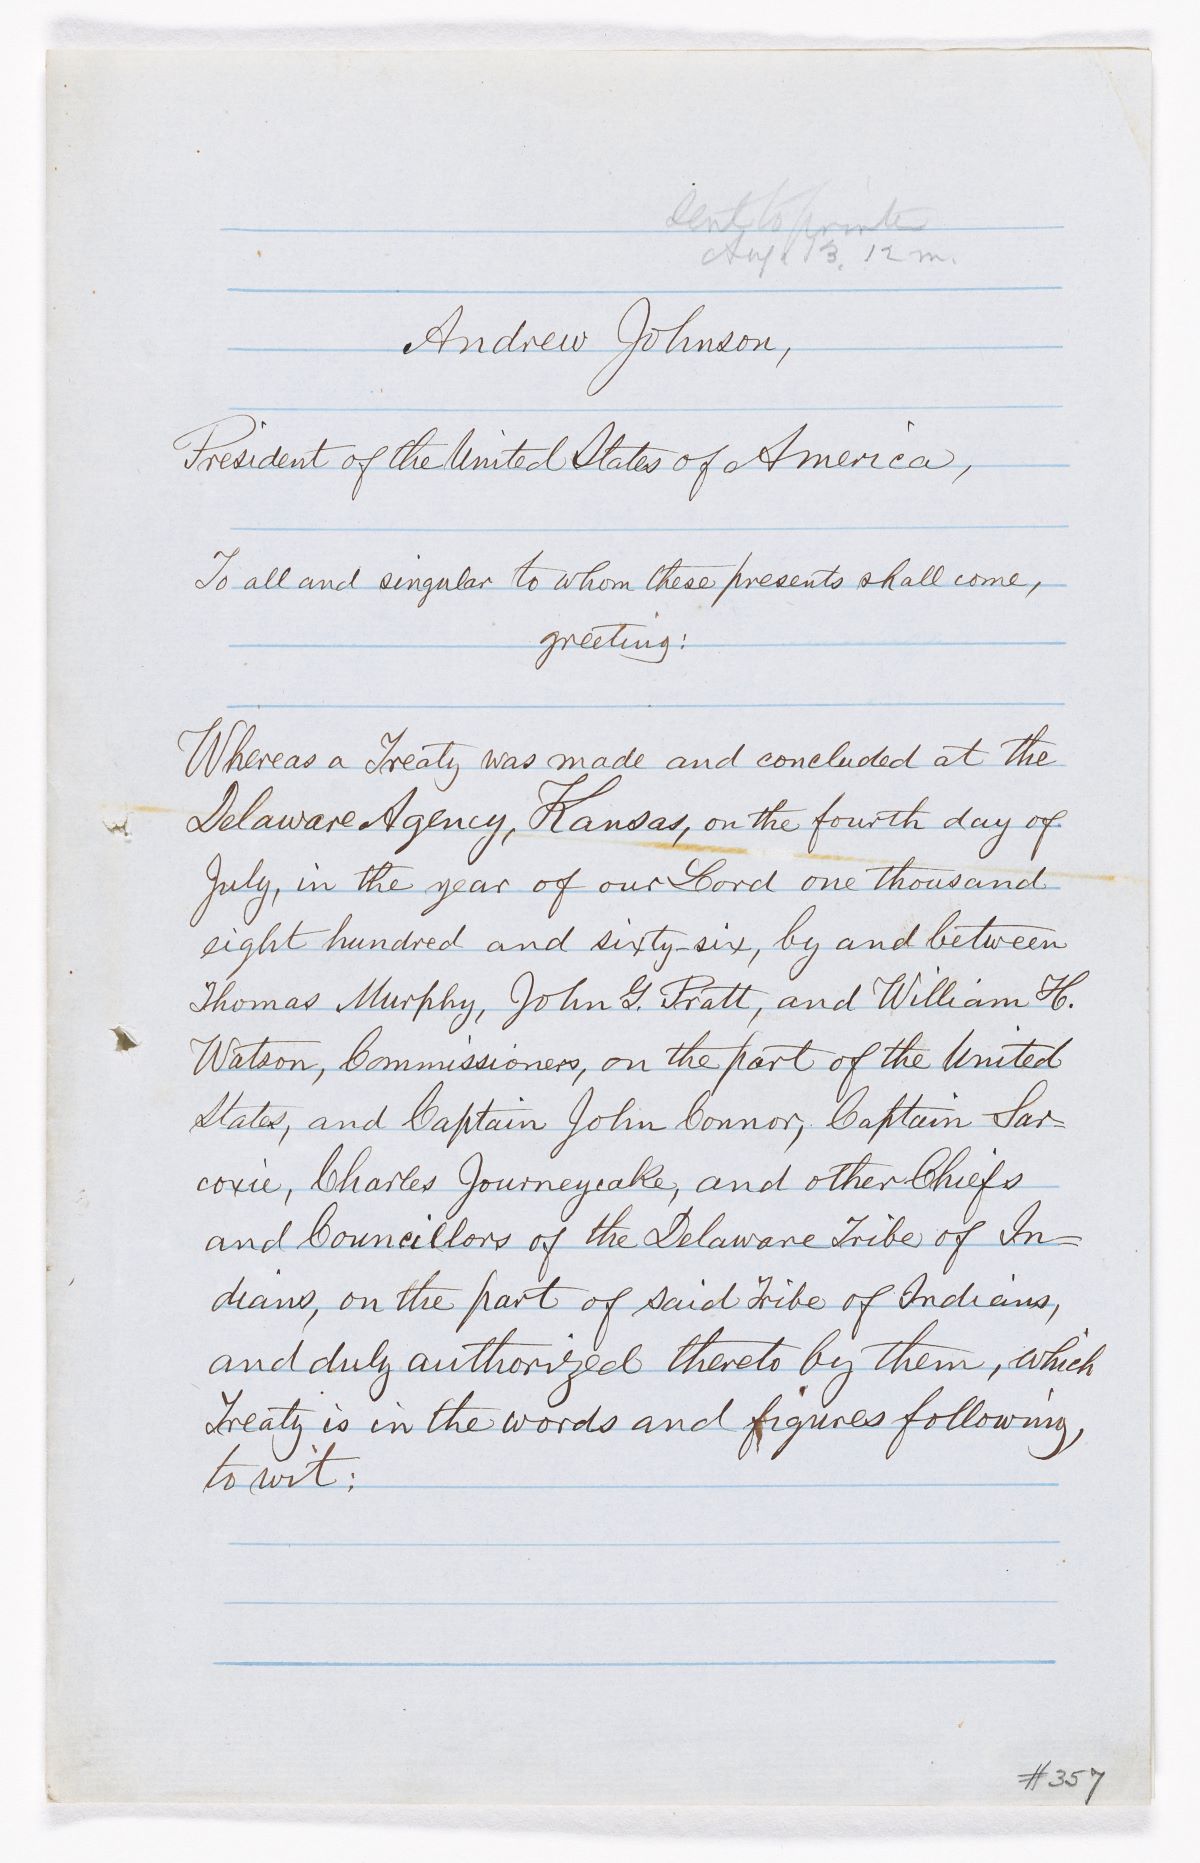 Sent to printer
Aug. 13. 12 m.
Andrew Johnson,
President of the United States of America,
To all and singular to whom these presents shall come,
greeting:
Whereas a Treaty was made and concluded at the
Delaware Agency, Kansas, on the fourth day of
July, in the year of our Lord one thousand
eight hundred and sixty-six, by and between
Thomas Murphy, John G. Pratt, and William H.
Watson, Commissioners, on the part of the United
States, and Captain John Connor, Captain Sar=
coxie, Charles Journeycake, and other Chiefs
and Councillors of the Delaware Tribe of In=
dians, on the part of said Tribe of Indians,
and duly authorized thereto by them, which
Treaty is in the words and figures following,
to wit:
#357